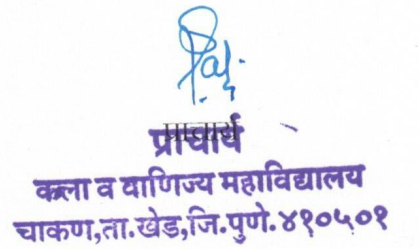 प्राचार्य
प्राचार्य
कला व वाणिज्य महाविद्यालय
चाकण,ता.खेड,जि.पुणे.४१०५०१